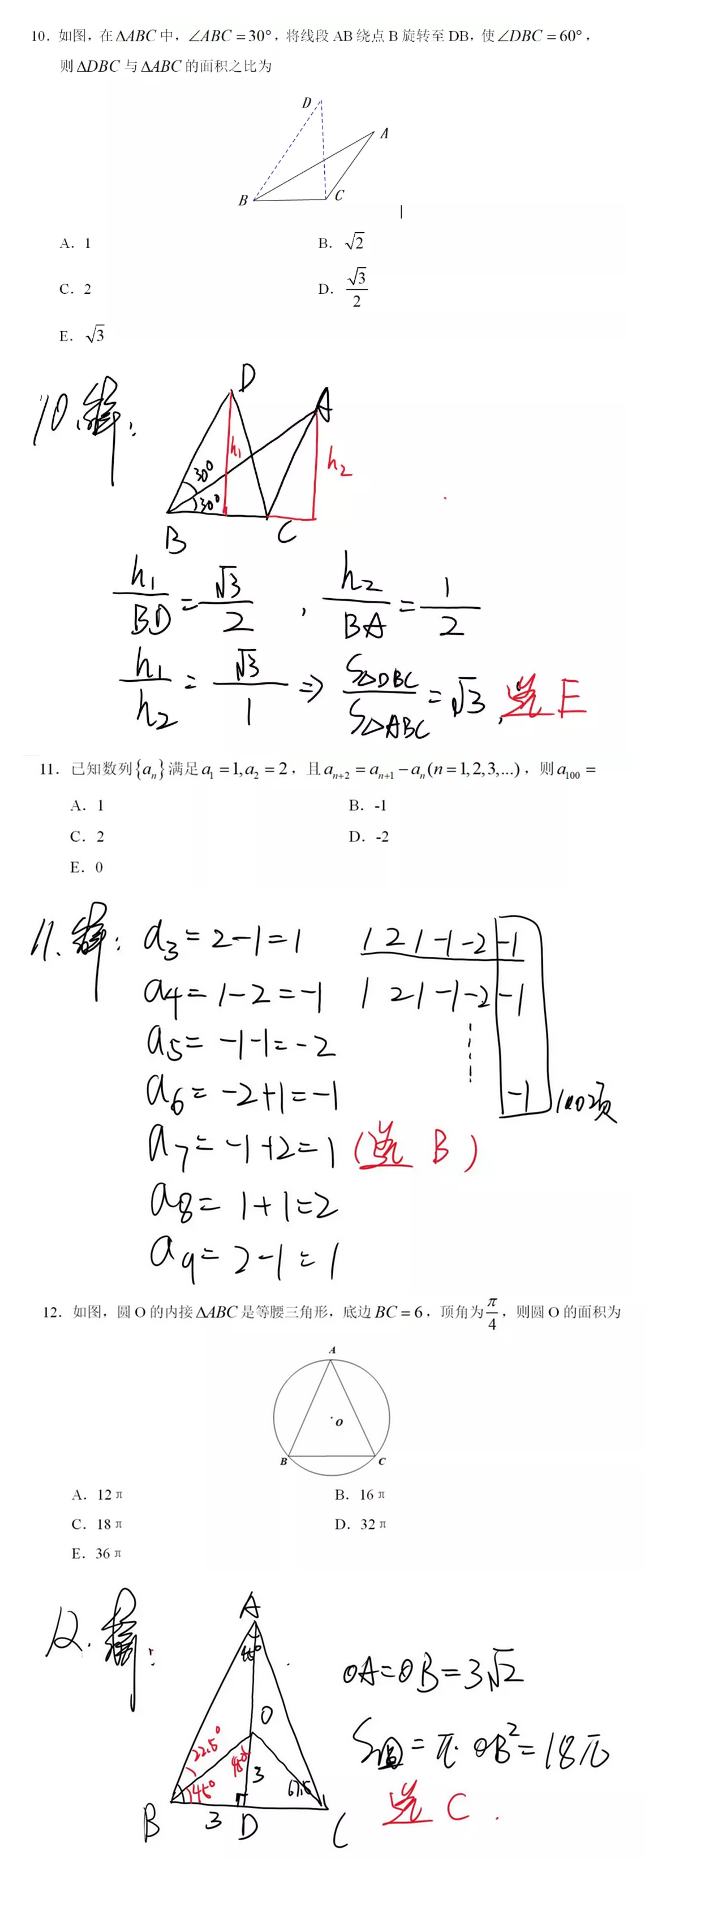 10. 如图，在ΔABC中，∠ABC=30°，将线段 AB 绕点 B 旋转至 DB，使∠DBC=60°，
则ΔDBC与ΔABC的面积之比为
D
A
B
C
A. 1
B. √2
C. 2
D. √3/2
E. √3
10.解：
D
A
h₁
h₂
30°
30°
B
C
h₁/BD=√3/2，h₂/BA=1/2
h₁/h₂=√3/1⇒S△DBC/S△ABC=√3，选E
11. 已知数列{aₙ}满足a₁=1,a₂=2，且aₙ₊₂=aₙ₊₁−aₙ(n=1,2,3,...)，则a₁₀₀=
A. 1
B. -1
C. 2
D. -2
E. 0
11.解：a₃=2-1=1 1 2 1 -1 -2 -1
a₄=1-2=-1 1 2 1 -1 -2 -1
a₅=-1-1=-2
a₆=-2+1=-1 -1 100项
a₇=-1+2=1（选 B）
a₈=1+1=2
a₉=2-1=1
12. 如图，圆 O 的内接ΔABC是等腰三角形，底边BC=6，顶角为π/4，则圆 O 的面积为
A
O
B
C
A. 12π
B. 16π
C. 18π
D. 32π
E. 36π
12.解：
A
45°
O
22.5°
45°
45°
3
67.5
B
3
D
C
OA=OB=3√2
S圆=π·OB²=18π
选 C.